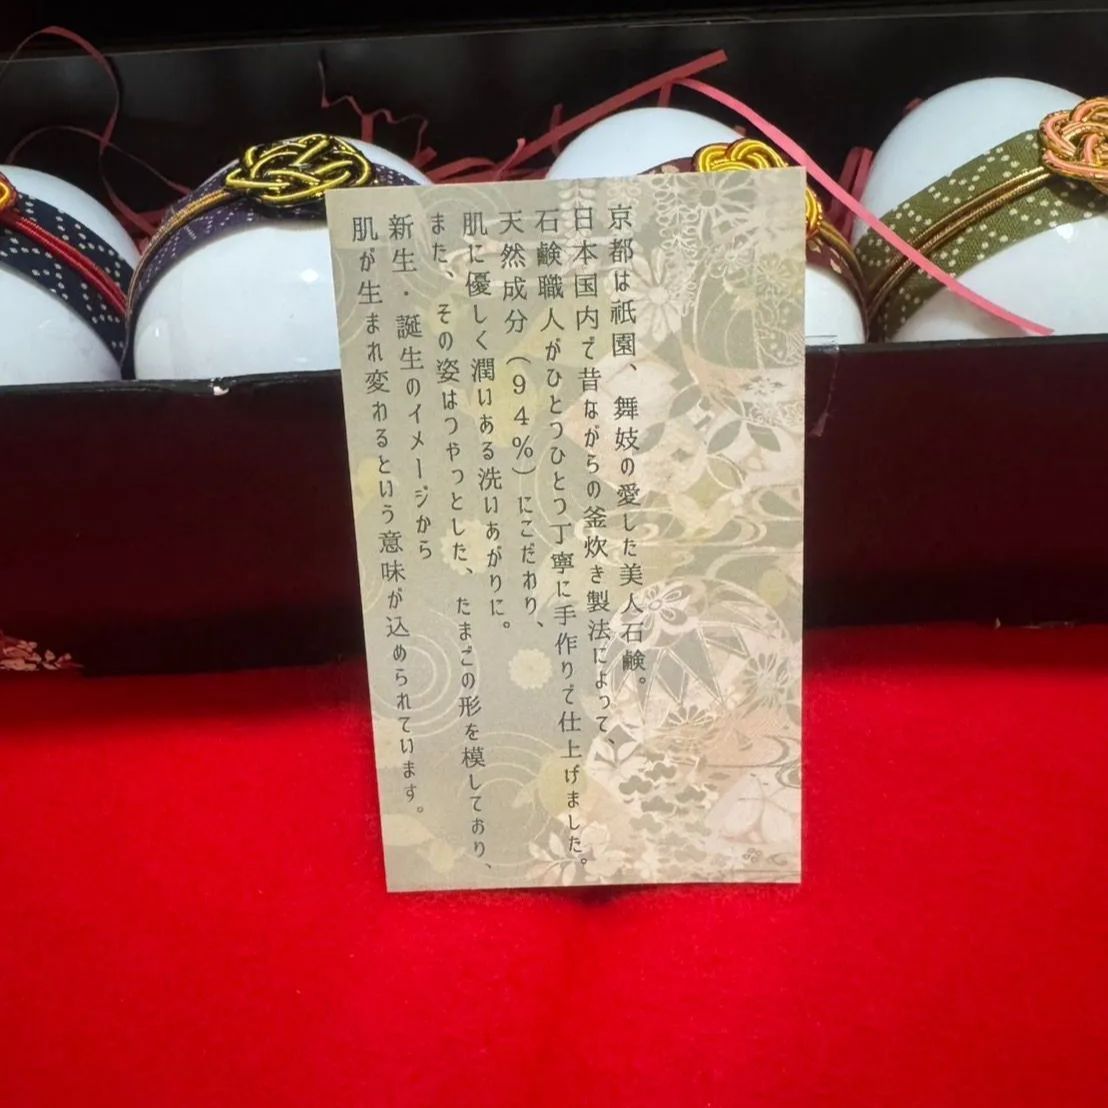 京都は祇園、舞妓の愛した美人石鹸。
日本国内で昔ながらの釜炊き製法によって、
石鹸職人がひとつひとつ丁寧に手作りで仕上げました。
天然成分(94%)にこだわり、
肌に優しく潤いある洗いあがりに。
また、その姿はつやっとした、たまごの形を模しており、
新生・誕生のイメージから
肌が生まれ変わるという意味が込められています。